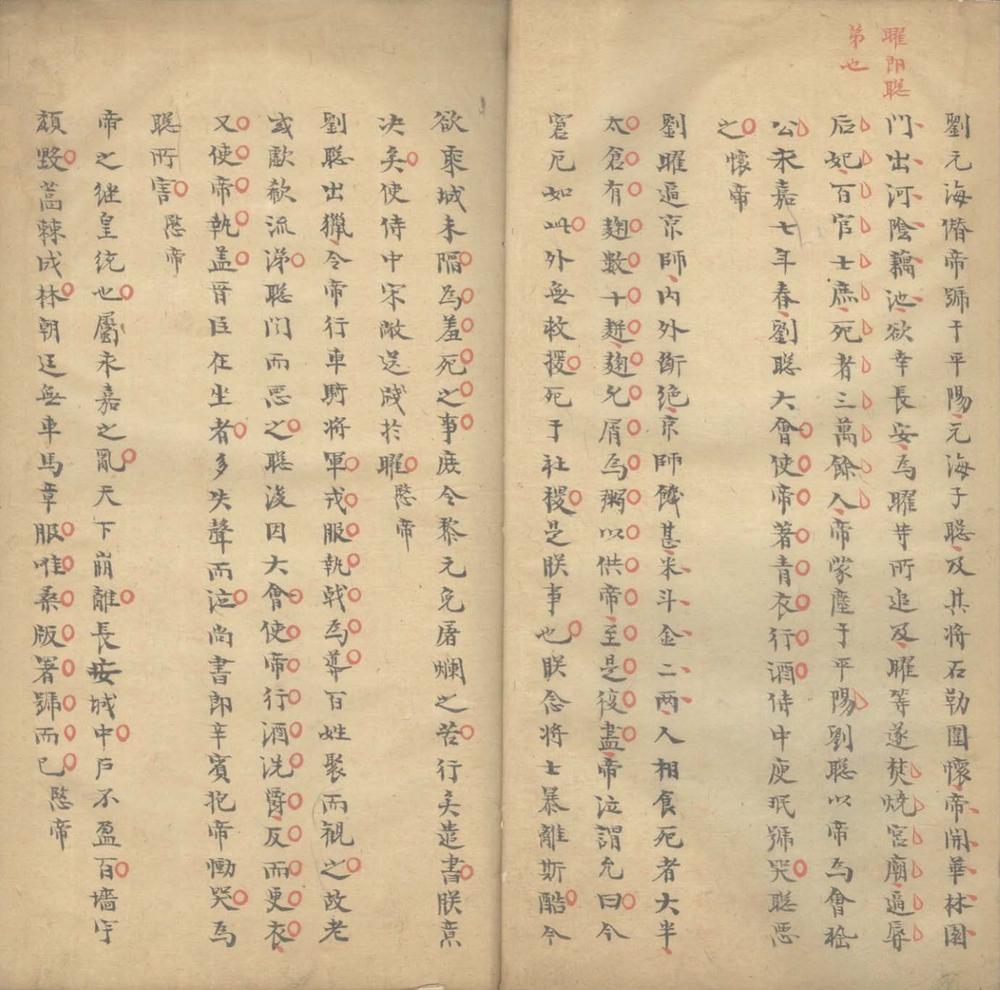 曜即聡
弟也
劉元海僭帝號于平陽元海子聡及其将石勒圍懷帝開華林園
門出河陰藕池欲幸長安為曜䓁所追及曜等遂焚燒宮廟逼辱
后妃百官士庶死者三萬餘人帝蒙塵于平陽劉聡以帝為會稽
公永嘉七年春劉聡大會使帝著青衣行酒侍中庾珉號哭聡惡
之懷帝
劉曜逼京師内外断絶京師饑甚米斗金二両人相食死者大半
太倉有麹數十䴵麹允屑為粥以供帝至是復盡帝泣謂允曰今
窘厄如此外無救援死于社稷是朕事也朕念将士暴離斯酷今
欲乗城未陥為羞死之事庶令黎元免屠爛之苦行矣遣書朕意
决矣使侍中宋敞送牋於曜愍帝
劉聡出獵令帝行車騎将軍戎服執戟為導百姓聚而観之故老
或歔欷流涕聡聞而惡之聡後因大會使帝行酒洗爵反而更衣
又使帝執盖晋臣在坐者多失聲而泣尚書郎辛賓抱帝慟哭為
聡所害愍帝
帝之継皇統也屬永嘉之亂天下崩離長安城中戸不盈百墻宇
頽毀蒿棘成林朝廷無車馬章服唯桑版署號而已愍帝